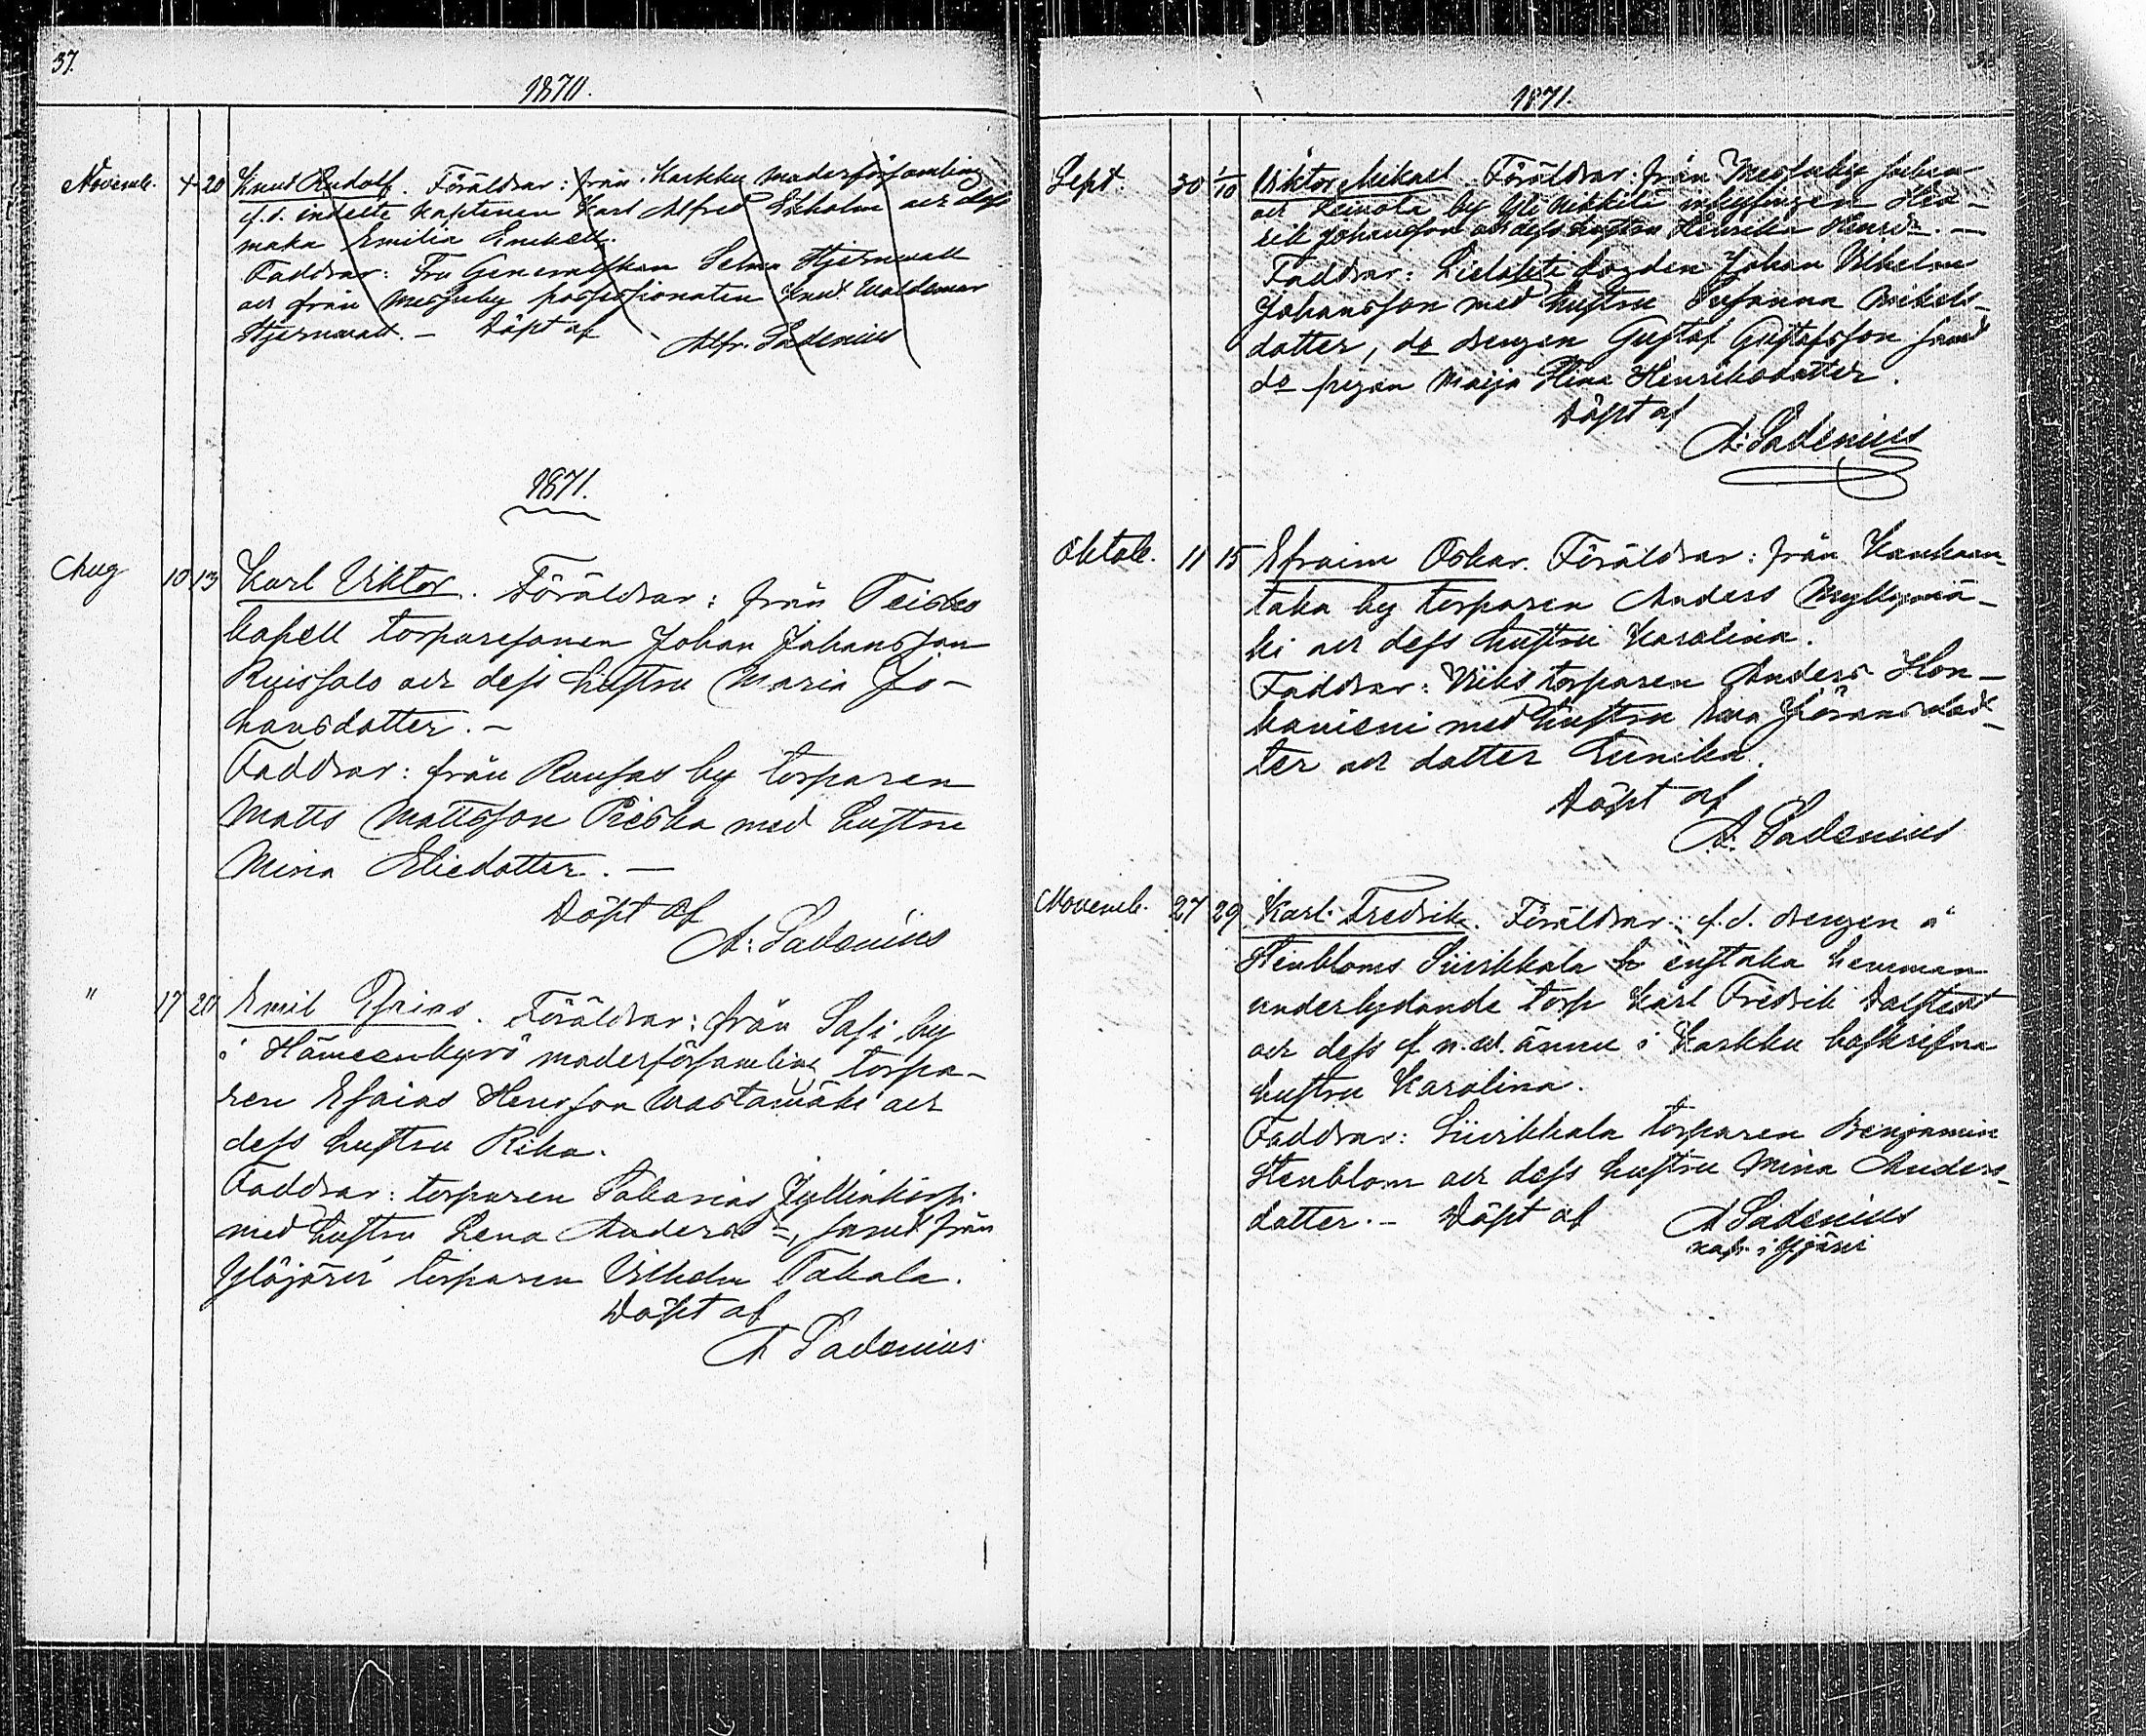 37.
1870.
Novemb. 4 20 Knut Rudolf. Föräldrar: från Karkku moderförsamling
f.d. indelte kaptenen Karl Alfred Ekholm och dess
maka Emilia Enckell.
Faddrar: Fru Generalskan Selma Stjernvall
och från Messuby possessionaten Knut Waldemar
Stjernvall. – Döpt af Alfr. Sadenius
1871.
Aug 10 13 Karl Viktor. Föräldrar: från Teisko
kapell torparesonen Johan Johansson
Ruissalo och dess hustru Maria Jo-
hansdotter. –
Faddrar: från Runsas by torparen
Matts Mattsson Pieska med hustru
Mina Eliedotter. –
Döpt af
A: Sadenius
" 17 20 Emil Esaias. Föräldrar: från Sasi by
i Hämeenkyrö moderförsamling torpa-
ren Esaias Hensson Wastamäki och
dess hustru Rika.
Faddrar: torparen Sakarias Jyllinkorpi
med hustru Lena Andersdr, samt från
Ylöjärvi torparen Vilhelm Takala.
Döpt af
A Sadenius
1871.
Sept. 30 1/10 Viktor Mikael. Föräldrar: från Messuby socken
och Leinola by Yli Nikkilä inhysingen Hen-
rik Johansson och dess hustru Henrika Henrdr. –
Faddrar: Lielaks fogden Johan Vilhelm
Johansson med hustru Susanna Mikels-
dotter, do drengen Gustaf Gustafsson samt
do pigan Maija Stina Henriksdotter.
Döpt af
A: Sadenius
Oktob. 11 15 Efraim Oskar. Föräldrar: från Kauhaan-
taka by torparen Anders Myllymä-
ki och dess hustru Karolina.
Faddrar: Viiks torparen Anders Hon-
kaniemi med hustru Eva Göransdot-
ter och dotter Eunika.
Döpt af
A. Sadenius
Novemb. 27 29 Karl Fredrik. Föräldrar: f.d. drengen å
Stenbloms Siivikkala enstaka hemman
underlydande torp Karl Fredrik Dalstedt
och dess f.n.w. ännu i Karkku bosk­rifna
hustru Karolina.
Faddrar: Siivikkala torparen Benjamin
Stenblom och dess hustru Mina Anders-
dotter. – Döpt af A Sadenius
kapl. i Yjärvi